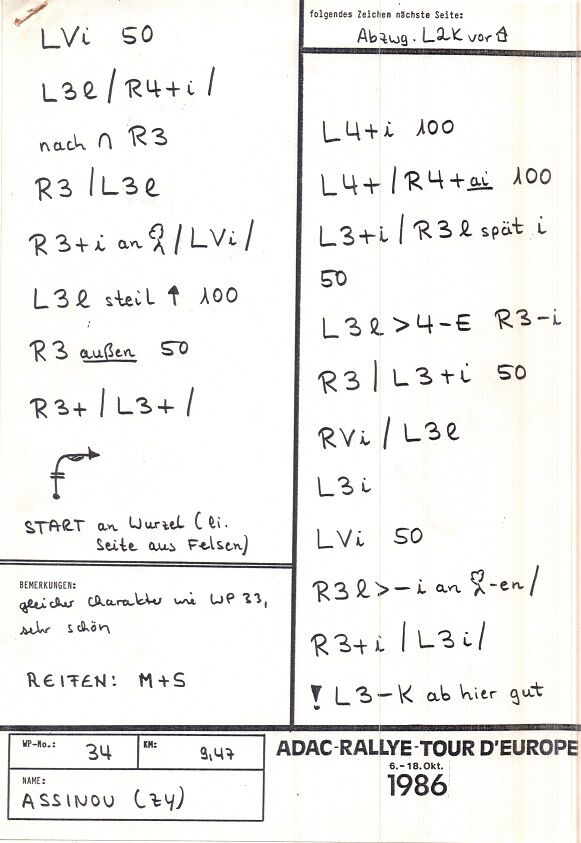 LVi 50
L3l / R4+i /
nach ∩ R3
R3 / L3l
R3+i an / LVi /
L3l steil ↑ 100
R3 außen 50
R3+ / L3+ /
START an Wurzel (li.
Seite aus Felsen)
BEMERKUNGEN:
gleicher Charakter wie WP 33,
sehr schön
REIFEN: M+S
folgendes Zeichen nächste Seite:
Abzwg. L2K vor
L4+i 100
L4+ / R4+ai 100
L3+i / R3l spät i
50
L3l > 4-E R3-i
R3 / L3+i 50
RVi / L3l
L3i
LVi 50
R3l > -i an -en /
R3+i / L3i /
! L3-K ab hier gut
WP-No.: 34 KM: 9,47
NAME:
ASSINOU (ZY)
ADAC-RALLYE-TOUR D'EUROPE
6.-18. Okt.
1986